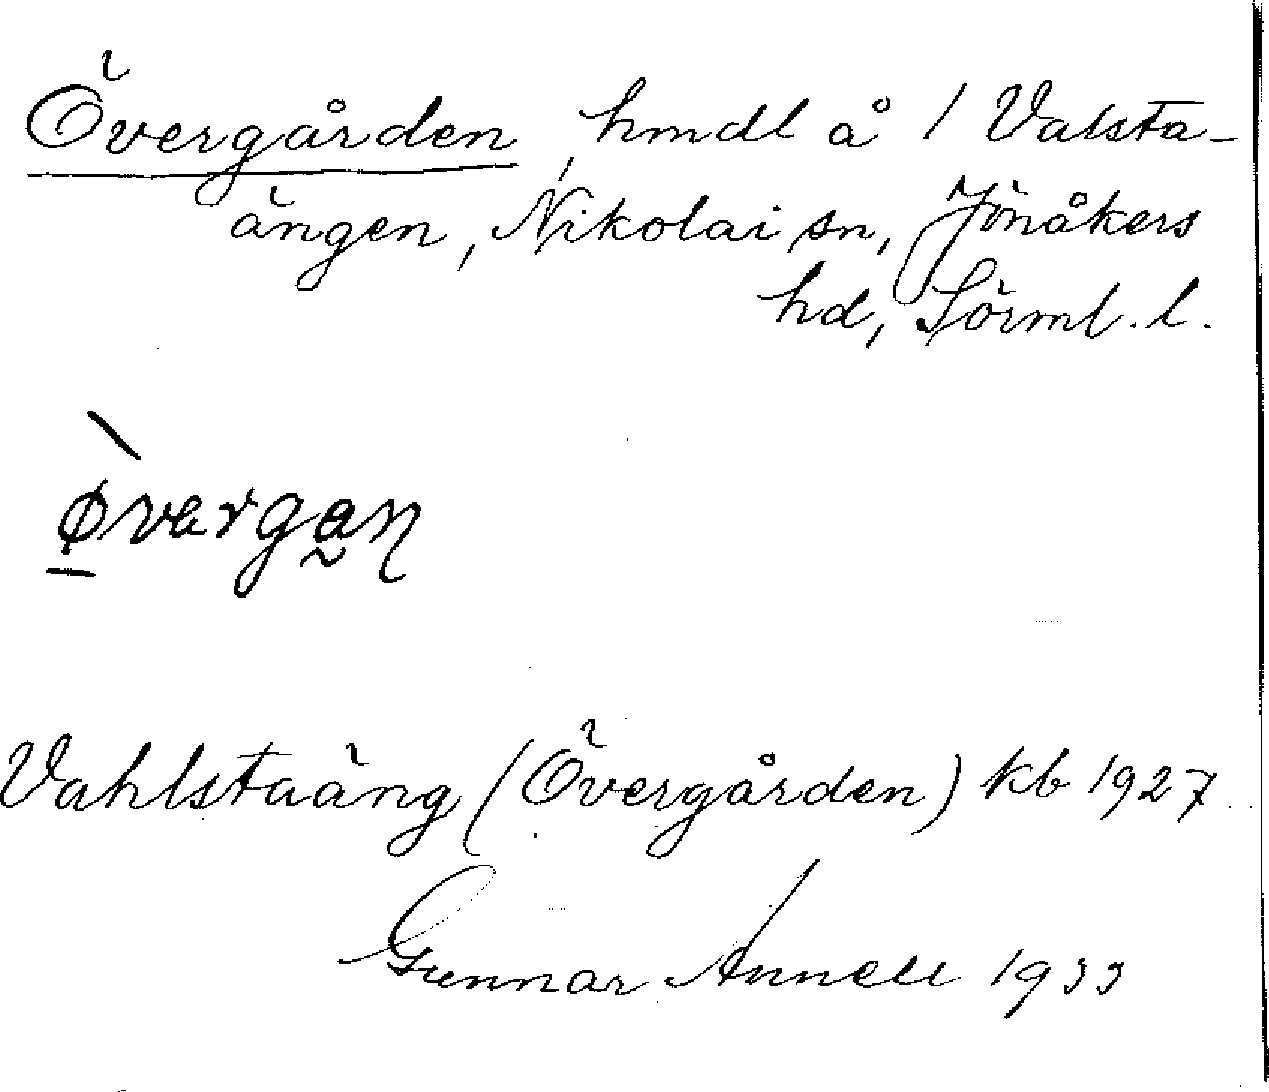 Övergården, hmdl å 1 Valsta-
ängen, Nikolai sn, Jönåkers
hd, Sörml. l.
Vahlstaäng (Övergården) kb 1927
Gunnar Annell 1933